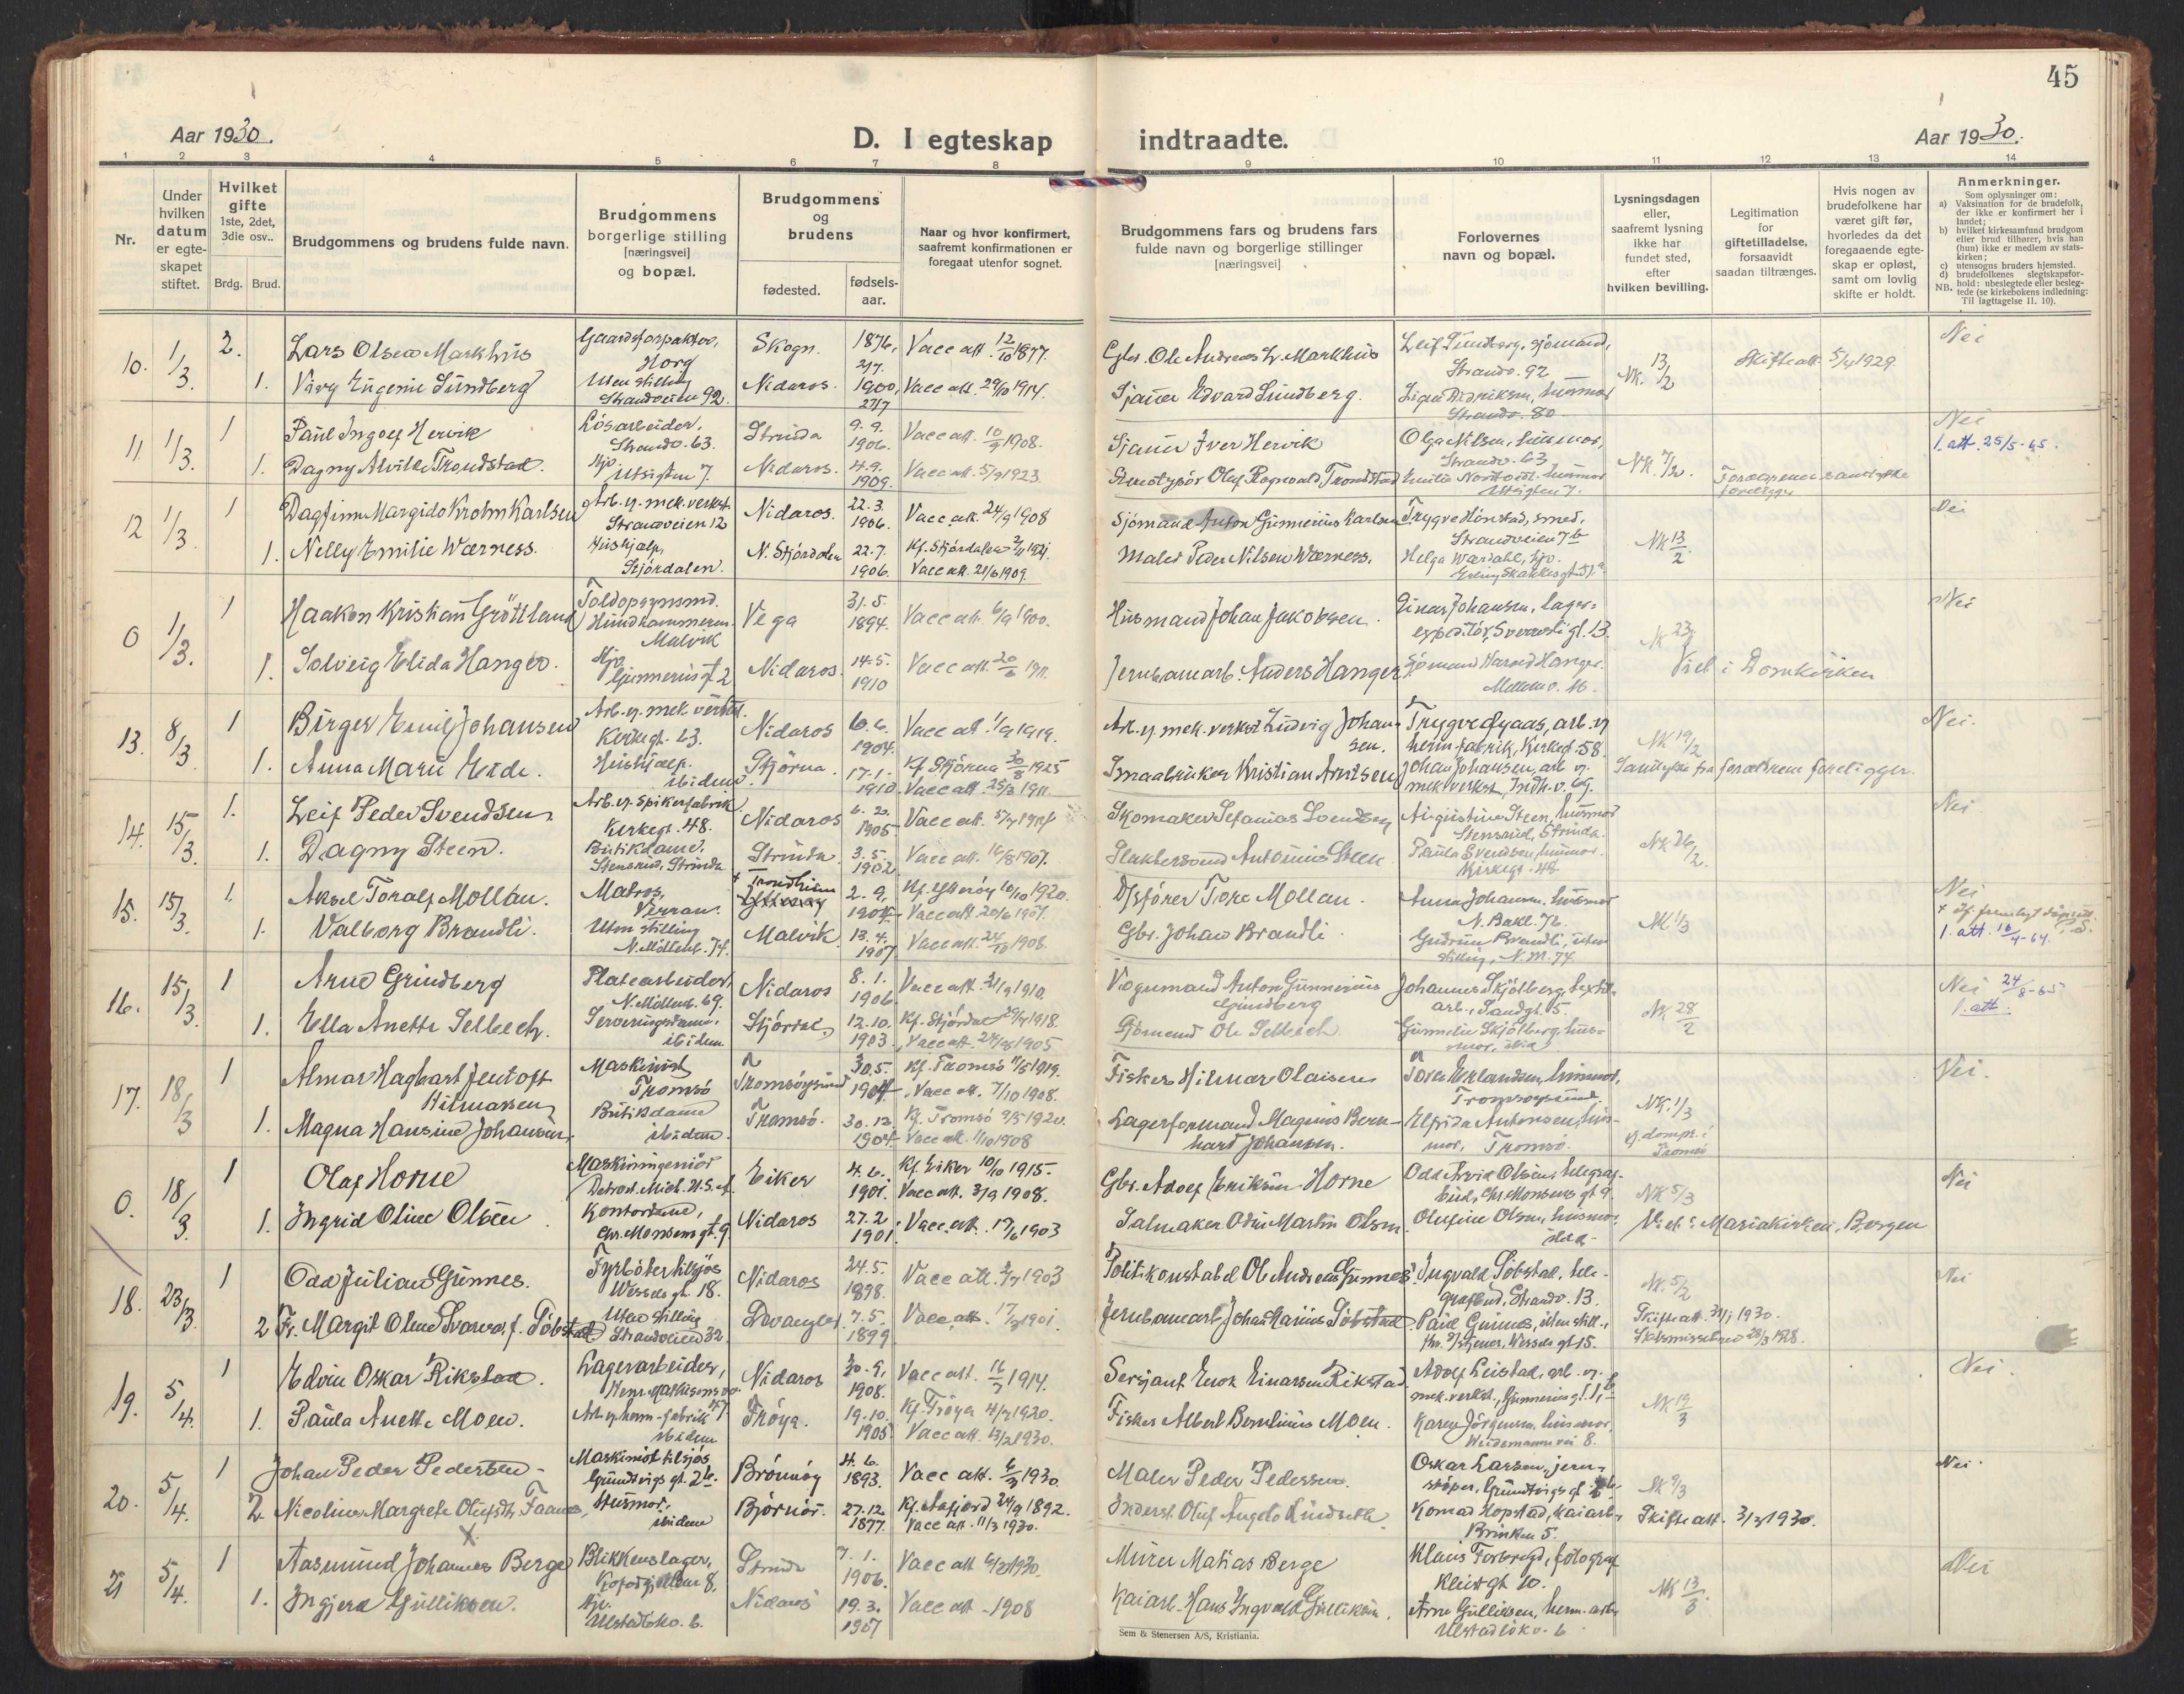 45
Aar 1930.
D. I egteskap indtraadte.
Aar 1930.
1 2 3 4 5 6 7 8 9 10 11 12 13 14
Nr.
Under hvilken datum er egteskapet stiftet.
Hvilket gifte 1ste, 2det, 3die osv..
Brdg. Brud.
Brudgommens og brudens fulde navn.
Brudgommens borgerlige stilling [næringsvei] og bopæl.
Brudgommens og brudens
fødested.
fødselsaar.
Naar og hvor konfirmert, saafremt konfirmationen er foregaat utenfor sognet.
Brudgommens fars og brudens fars fulde navn og borgerlige stillinger [næringsvei]
Forlovernes navn og bopæl.
Lysningsdagen eller, saafremt lysning ikke har fundet sted, efter hvilken bevilling.
Legitimation for giftetilladelse, forsaavidt saadan tiltrænges.
Hvis nogen av brudefolkene har været gift før, hvorledes da det foregaaende egteskap er opløst, samt om lovlig skifte er holdt.
Anmerkninger.
Som oplysninger om:
a) Vaksination for de brudefolk, der ikke er konfirmert her i landet;
b) hvilket kirkesamfund brudgom eller brud tilhører, hvis han (hun) ikke er medlem av statskirken;
c) utensogns bruders hjemsted.
d) brudefolkenes slegtskapsforhold: ubeslegtede eller beslegtede (se kirkebokens indledning: NB. Til Iagttagelse II. 10).
10. 1/3. 2. Lars Olsen Markhus Gaardsforpakter, Horg Skogn. 1876, 21/7. Vacc att. 12/10 1877. Gbr. Ole Andreas L. Markhus Leif Sundberg, sjömand, Strandv. 92 NK. 13/2 Skifteatt. 5/4 1929. Nei
1. Eugenie Sundberg Uten stilling Strandveien 92. Nidaros. 1900, 27/7 Vacc att. 29/10 1914. Sjauer Edvard Sundberg. husmor Strandv. 80
11. 1/3. 1 Paul Ingolf Hervik Lösarbeider, Strandv. 63. Strinda 9.9. 1906. Vacc att. 10/9 1908. Sjauer Iver Hervik Olga Nilsen, husmor, Strandv. 63 NK. 7/2. Nei 1. att. 25/5-65.
1. Dagny Alvilde Trondstad. Hjv. Utsigten 7. Nidaros. 4.9. 1909. Vacc att. 5/9 1923. Stereotypör Olaf Ragnvald Trondstad husmor Utsigten 7. samtykke foreligger
12 1/3. 1 Dagfinn Margido Krohn Karlsen Arb. v. mek. verkst. Strandveien 12 Nidaros. 22.3. 1906. Vacc att. 24/9 1908 Sjömand Anton Gunnerius Karlsen Trygve Hönstad, smed, Strandveien 7b NK 13/2 Nei
1. Nelly Emilie Wærness. Hushjælp, Stjördalen. N. Stjördalen 22.7. 1906. Kf. Stjördalen 2/11 1921. Vacc att. 21/6 1909. Maler Peder Nilsen Wærness. Helga Wærdahl, hjv. Erling Skakkes gt.
0 1/3. 1 Haakon Kristian Gröttland Toldopsynsmd. Hundhammeren Malvik Vega 31.5. 1894. Vacc att. 6/9 1900. Husmand Johan Jakobsen. Einar Johansen, lagerexpeditör, Sverresli gt. 13. NK 23/2 Nei
1. Solveig Elida Hanger. Hjv. Gunnerusgt. 2 Nidaros. 14.5. 1910 Vacc att. 20/6 1911. Jernbanearb. Anders Hanger Sjömand Harald Hanger. Mellemv. 16. Viet i Domkirken
13. 8/3 1 Birger Emil Johansen Arb. v. mek. verkst. Kirkegt. 23. Nidaros 6.6. 1904. Vacc att 1/9 1919. Arb. v. mek. verkst. Ludvig Johansen. Trygve Gjaas, arb. v. herm. fabrik, Kirkegt. 58. NK 19/2 Nei.
1. Anna Marie Eide. Hushjælp. ibidem. Stjörna. 17.1. 1910. Kf Stjörna 30/8 1925 Vacc att. 25/3 1911. Smaabruker Kristian Arntsen Johan Johansen, arb. v. mek. verkst, Indh. v. 69. Samtykke fra forældrene foreligger.
14. 15/3 1. Leif Peder Svendsen Arb. v. spikerfabrik Kirkegt. 48. Nidaros 6.20. 1905 Vacc att. Skomaker Sefanias Svendsen Augustine Steen, husmor Stensrud, Strinda. NK 26/2. Nei
1. Dagny Steen. Butikdame, Stensrud, Strinda Strinda. 3.5. 1902 Vacc att. 16/8 1907. Slaktersvend Antonius Steen Paula Svendsen, husmor. Kirkegt. 48.
15. 15/3. 1. Aksel Toralf Mollan. Matros, Verran. Trondheim 2.9. 1904 Kf. Ytteröy 10/10 1920. Vacc att 20/6 1907. Tore Mollan. Anna Johansen, husmor N. Bakl. 72. NK 1/3 Nei 1. att. 16/4-64.
1. Valborg Brandli. Uten stilling N. Möllebk. 74. Malvik 13.4. 1907 Vacc att. 24/10 1908. Gbr. Johan Brandli. Gudrun Brandli, uten stilling, N.M. 74
16. 15/3. 1 Arne Grindberg Platearbeider, N. Möllenb. 69. Nidaros 8.1. 1906 Vacc att. 21/9 1910. Vognmand Anton Gunnerius Grindberg Johannes Skjölberg, textilarb., Sandgt. 15. NK 28/2 Nei 24/8-65 1. att.
1. Ella Anette Selbech. Serveringsdame, ibidem Stjördal 12.10. 1903 Kf. Stjördal 29/9 1918. Ole Selbech. Gunnelie Skjölberg, husmor, ibid
17. 18/3 1 Almar Hagbart Jentoft Hilmarsen Maskinist Tromsö Tromsöysund 30.5. 1904 Kf. Tromsö 11/5 1919. Vacc att. 7/10 1908. Fisker Hilmar Olaisen Tora Erlandsen, husmor, Tromsöysund. NK. 1/3 Nei.
1. Magna Hansine Johansen Butikdame ibidem. Tromsö. 30.12. 1904. Kf. Tromsö 9/5 1920. Vacc att. 1/10 1908 Lagerformand Magnus Bernhard Johansen. Elfrida Antonsen, husmor, Tromsö. v. dompr. i Tromsö
0. 18/3. 1 Olaf Horne Maskiningeniör Detroit. Mich. U.S.A. Eiker 4.6. 1901. Kf. Eiker 10/10 1915. Vacc att. 3/9 1908. Gbr. Adolf Eriksen Horne Odd Arvid Olsen, telegrafbud, Chr. Monsens gt 9. NK 5/3 Nei
1. Ingrid Oline Olsen. Kontordame, Chr. Monsens gt. 9. Nidaros 27.2 1901. Vacc att. 17/6 1903 Salmaker Odin Martin Olsen Olufine Olsen, husmor, ibid. Viet i Mariakirken, Bergen
18. 23/3. 1 Odd Julian Günnes. Fyrböter tilsjös Wessels gt. 18. Nidaros 24.5. 1898. Vacc att. 2/7 1903 Politikonstabel Ole Andreas Günnes Ingvald Söbstad, telegrafbud, Strandv. 13. NK. 5/2 Nei
2 Fr. Margit Oline Svarva f. Söbstad Uten stilling Strandveien 32. 7.5. 1899 Vacc att. 17/7 1901. Jernbanearb Johan Marius Söbstad. Paul Günnes, uten still., Wessels gt 15. Skifteatt. 31/1 1930. 28/3 1928.
19. 5/4. 1 Edvin Oskar Rikstad. Lagerarbeider, Henr. Mathisons v. 47 Nidaros 30.9. 1908. Vacc att. 16/7 1914. Sersjant Enok Einarsen Rikstad Adolf Leistad, arb. v. mek. verkst., Gunnerusgt. 1b NK 19/3 Nei.
1. Paula Anette Moen. Arb. v. herm. fabrik ibidem Fröya. 19.10. 1905 Kf. Fröya 4/7 1920. Vacc att. 13/2 1930. Fisker Albert Bernlius Moen. Karen Jörgensen, husmor, Weidemannsvei 8.
20. 5/4. 1 Johan Peder Pedersen Maskinist tilsjös Grundtvigs gt. 2b. Brönnöy 4.6. 1893. Vacc att. 6/3 1930. Maler Peder Pedersen. Oskar Larsen, jernstöper, Grundtvigs gt NK 9/3 Nei
2. Nicoline Margrete Olufsdtr Faanes, X Husmor, ibidem Björnör. 27.12. 1877. Kf. Aafjord 24/9 1892. Vacc att. 11/3 1930. Inderst. Oluf Angel Konrad Hopstad, kaiarb., Brinken 5. Skifteatt. 3/3 1930.
21 5/4. 1 Aasmund Johannes Berge Blikkenslager, 8, Strinda 7.1. 1906. Vacc att 6/3 1930. Murer Matias Berge Klaus Forbregd, fotograf Kleist gt 10. NK 13/3. Nei
1. Ingjerd Gulliksen. Hjv. Ulstadlökv. 6. Nidaros 19.3. 1907 Vacc att - 1908 Kaiarb. Hans Ingvald Gulliksen. Arne Gulliksen, herm. arb. Ulstadlökv. 6
Sem & Stenersen A/S, Kristiania.